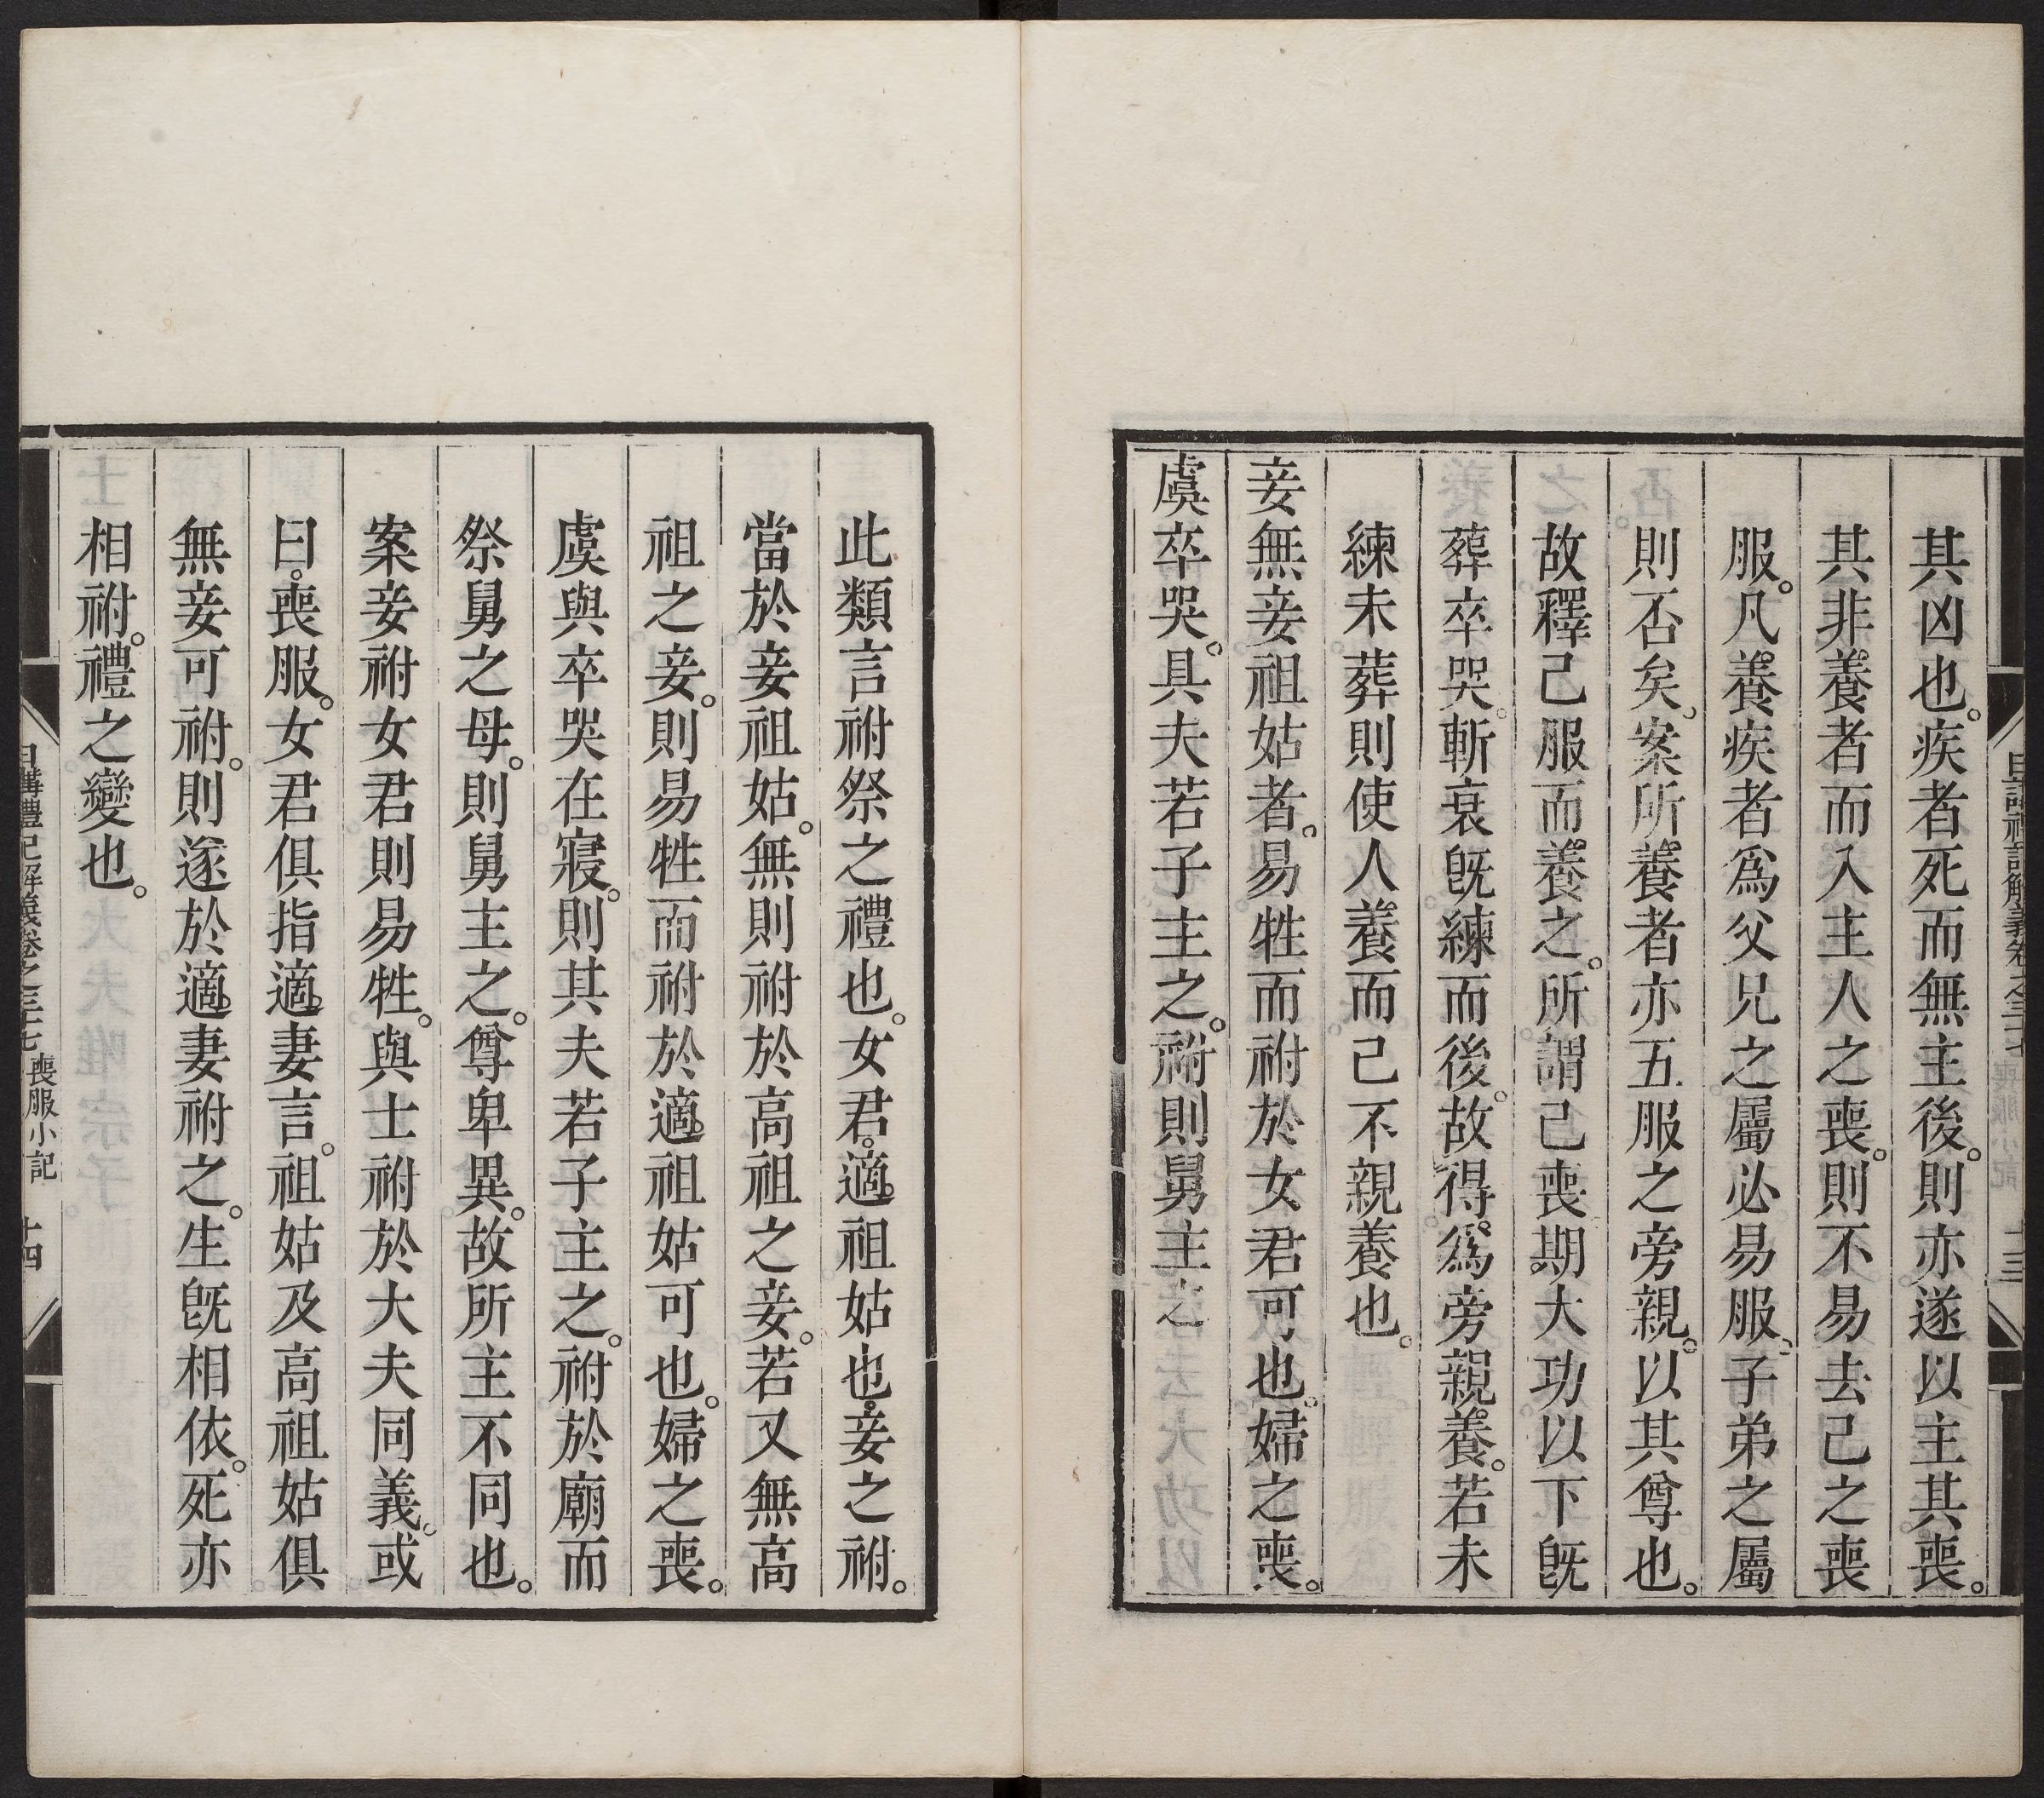 其凶也。疾者死而無主後。則亦遂以主其喪。
其非養者而入主人之喪。則不易去己之喪
服。凡養疾者爲父兄之屬必易服。子弟之屬
則否矣。案所養者亦五服之旁親。以其尊也。
故釋己服而養之。所謂己喪期大功以下旣
葬卒哭。斬衰旣練而後。故得爲旁親養。若未
練未葬則使人養而己不親養也。
妾無妾祖姑者。易牲而祔於女君可也。婦之喪。
虞卒哭。其夫若子主之。祔則舅主之
日講禮記解義卷之三十七 喪服小記 十三
此類言祔祭之禮也。女君。適祖姑也。妾之祔。
當於妾祖姑。無則祔於高祖之妾。若又無高
祖之妾。則易牲而祔於適祖姑可也。婦之喪。
虞與卒哭在寢。則其夫若子主之。祔於廟而
祭舅之母。則舅主之。尊卑異。故所主不同也。
案妾祔女君則易牲。與士祔於大夫同義。或
曰。喪服。女君俱指適妻言。祖姑及高祖姑俱
無妾可祔。則遂於適妻祔之。生旣相依。死亦
相祔。禮之變也。
日講禮記解義卷之三十七 喪服小記 十四